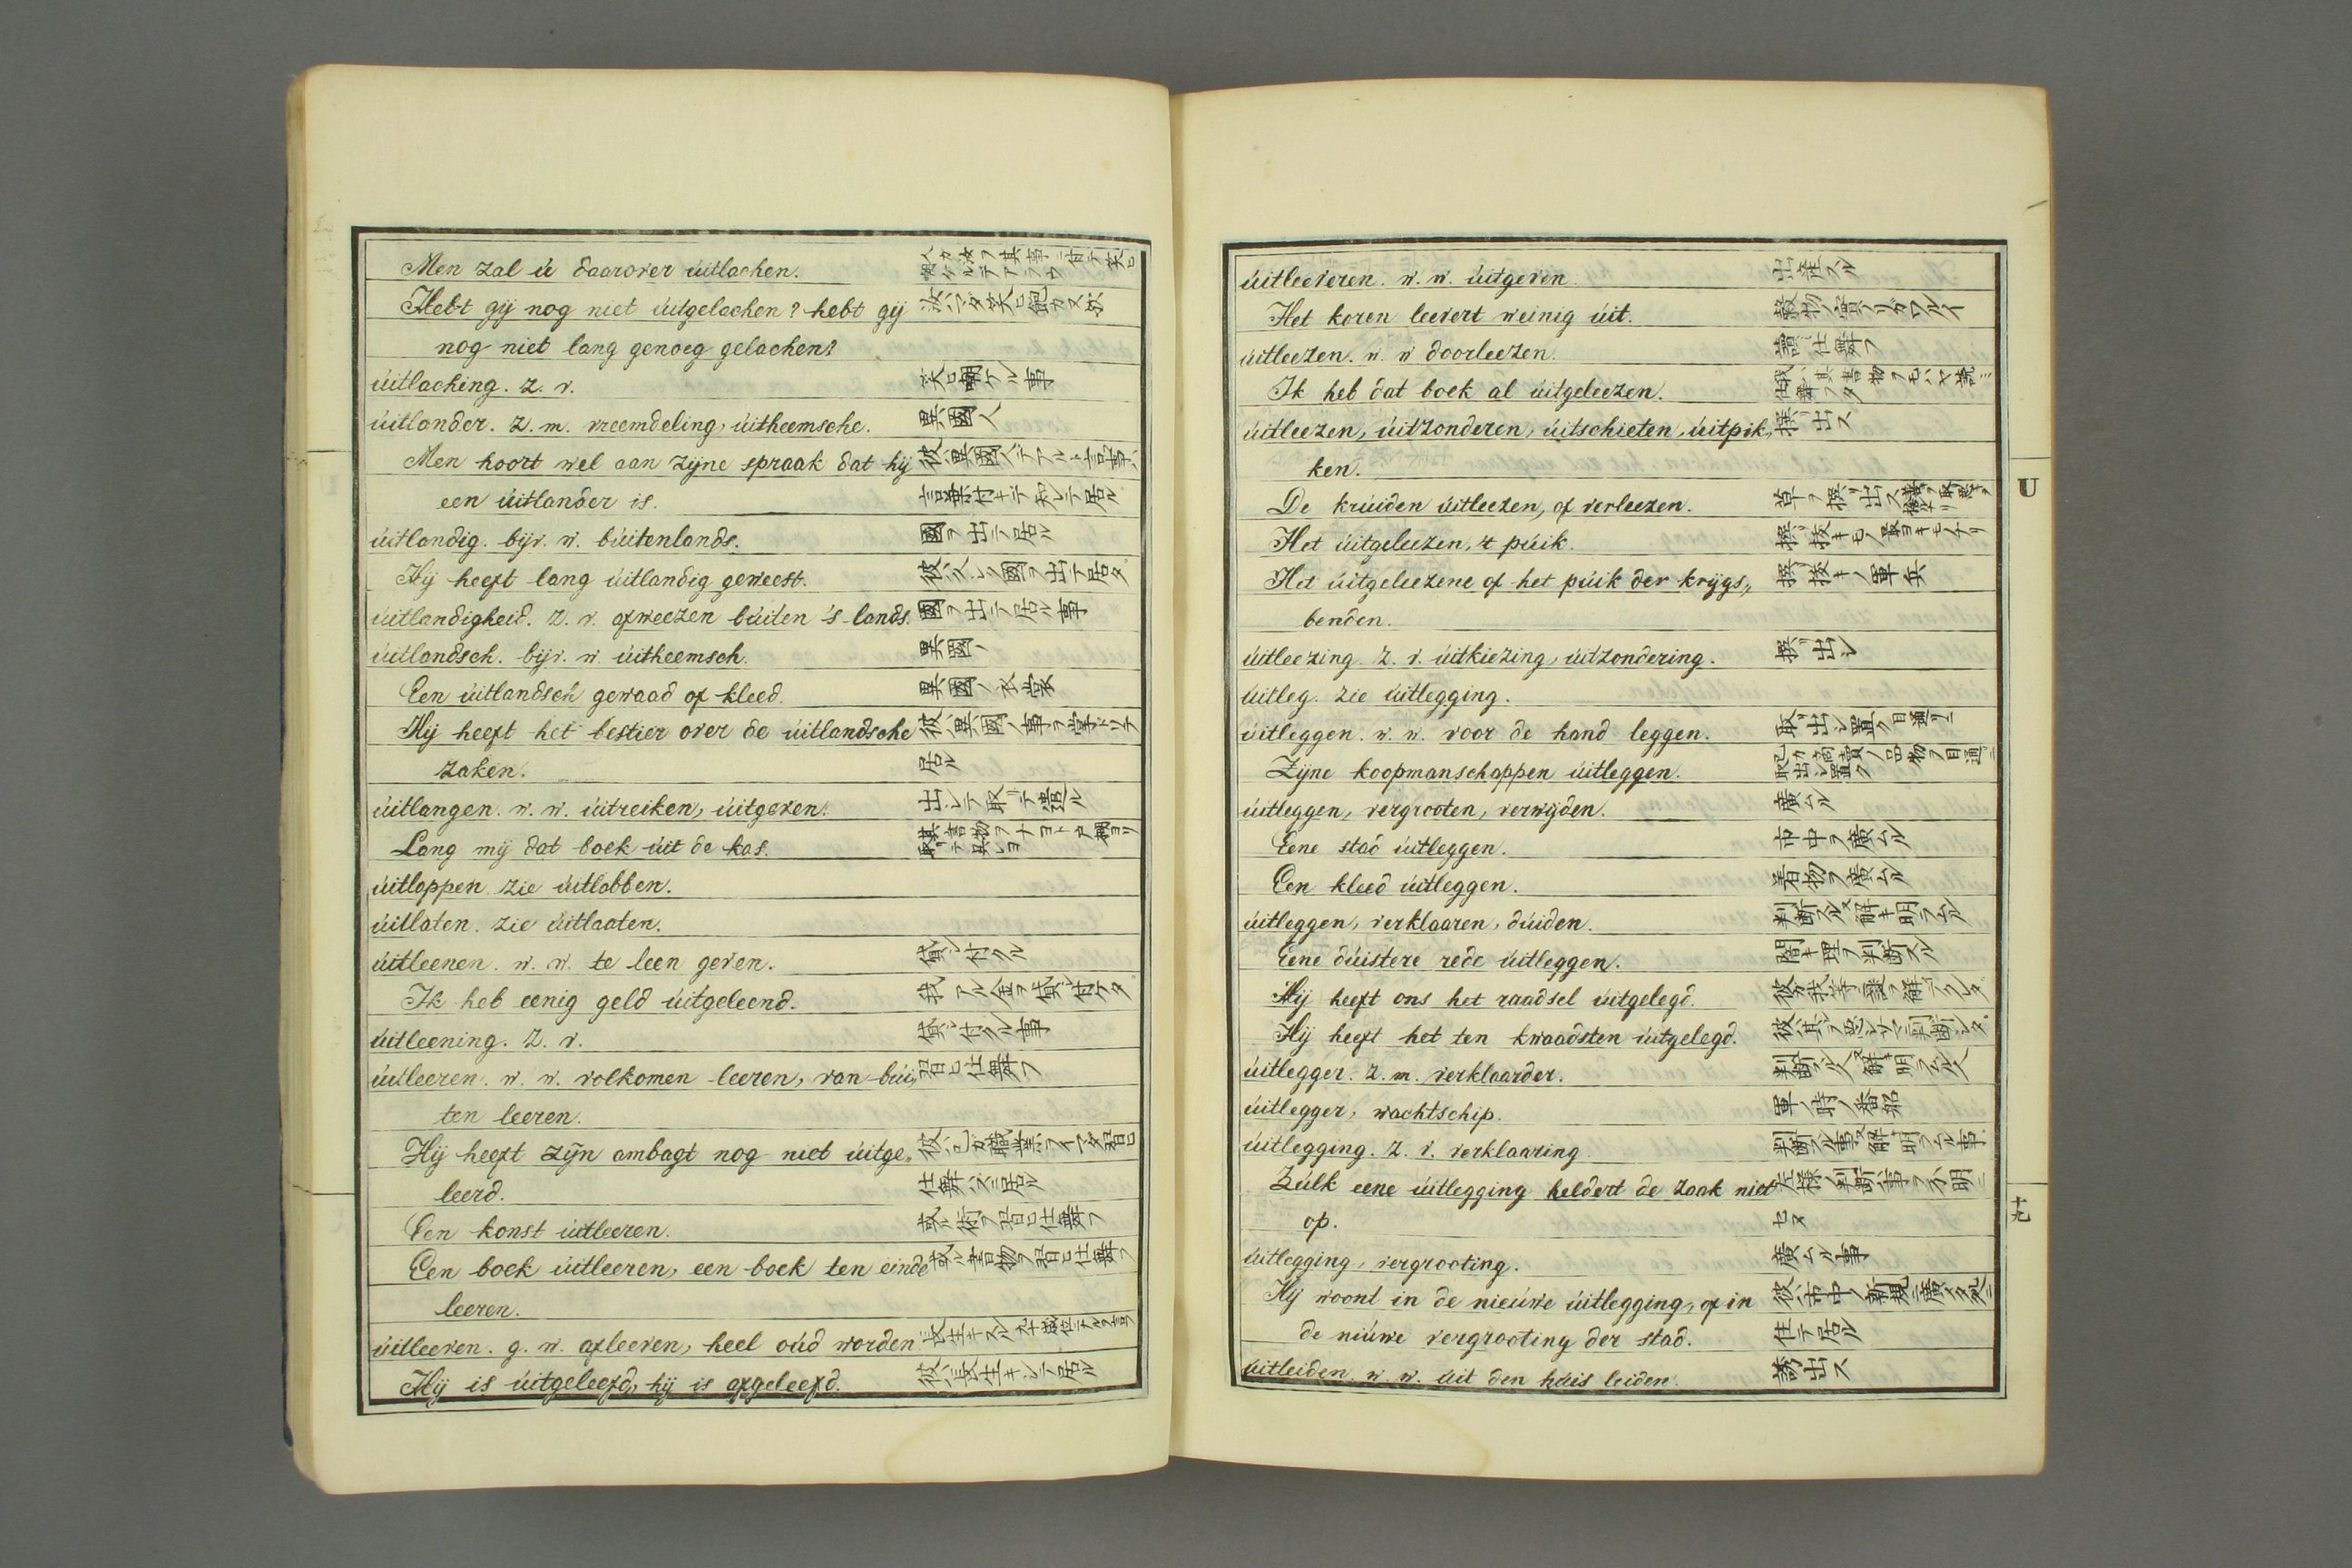 Men zal ú daarover úitlachen. 人カ汝ヲ其事ニ付テ笑ヒ嘲ケルデアラウ
Hebt gij nog niet úitgelachen? hebt gij 汝ハマダ笑ヒ飽カヌカ
nog niet lang genoeg gelachen?
úitlaching. z. v. 笑ヒ嘲ケル事
úitlander. z. m. vreemdeling, úitheemsche. 異國人
Men hoort wel aan zijne spraak dat hij 彼ハ異國人デアルト言事ハ
een úitlander is. 言葉付キデ知レテ居ル
úitlandig. bijv. w. búitenlands. 國ヲ出テ居ル
Hij heeft lang úitlandig geweest. 彼ハ久シク國ヲ出テ居タ
úitlandigheid. z. v. afweezen búiten 's lands. 國ヲ出テ居ル事
úitlandsch. bijv. w. úitheemsch. 異國ノ
Een úitlandsch gewaad of kleed. 異國ノ衣裳
Hij heeft het bestier over de úitlandsche 彼ハ異國ノ事ヲ掌ドリテ
zaken. 居ル
úitlangen. w. w. úitreiken, úitgeven. 出シテ取テ遣ル
Lang mij dat boek úit de kas. 其書物ヲ戸棚ヨリ取テ呉レヨ
úitlappen. zie úitlobben.
úitlaten. zie úitlaaten.
úitleenen. w. w. te leen geven. 貸シ付クル
Ik heb eenig geld úitgeleend. 我アル金ヲ貸シ付ケタ
úitleening. z. v. 貸シ付クル事
úitleeren. w. w. volkomen leeren, van búi„ 習ヒ仕舞フ
ten leeren.
Hij heeft zijn ambagt nog niet úitge„ 彼ハ己カ職業ヲイマタ習ヒ
leerd. 仕舞ハズニ居ル
Een konst úitleeren. 或ル術ヲ習ヒ仕舞フ
Een boek úitleeren, een boek ten einde 或ル書物ヲ習ヒ仕舞フ
leeren.
úitleeven. g. w. afleeven, heel oúd worden 長生キスル
Hij is úitgeleefd, hij is afgeleefd. 彼ハ長生キシテ居ル
úitleeveren. w. w. úitgeven. 出産スル
Het koren leevert weinig úit. 穀物ノ實ノリカワルイ
úitleezen. w. w doorleezen. 讀ミ仕舞フ
Ik heb dat boek al úitgeleezen. 我ハ其書物ヲモハヤ讀ミ仕舞フタ
úitleezen, úitzonderen, úitschieten, úitpik„ 撰リ出ス
ken.
De krúiden úitleezen, of verleezen. 草ヲ撰リ出ス
Het úitgeleezen, 't púik. 撰リ抜キモノ最ヨキモノナリ
Het úitgeleezene of het púik der krijgs„ 撰リ抜キノ軍兵
benden.
úitleezing z. v. úitkiezing, úitzondering. 撰リ出シ
úitleg. zie úitlegging.
úitleggen. w. w. voor de hand leggen. 取リ出シ置ク目通リニ
Zijne koopmanschappen úitleggen. 商賣ノ品物ヲ目通ニ取出シ置ク
úitleggen, vergrooten, verwijden. 廣ムル
Eene stad úitleggen. 市中ヲ廣ムル
Een kleed úitleggen. 着物ヲ廣ムル
úitleggen, verklaaren, dúiden. 判断スル又解キ明ラムル
Eene dúistere rede úitleggen. 闇キ理ヲ判断スル
Hij heeft ons het raadsel úitgelegd. 彼ハ我等ニ謎ヲ解テクレタ
Hij heeft het ten kwaadsten úitgelegd. 彼ハ其ヲ悪シサマニ判断シタ
úitlegger. z. m. verklaarder. 判断スル人又解キ明ラムル人
úitlegger, wachtschip. 軍ノ時ノ番船
úitlegging. z. v. verklaaring 判断スル事又解キ明ラムル事
Zúlk eene úitlegging heldert de zaak niet 左様ノ判断ハ事ヲ不明ニ
op. セヌ
úitlegging, vergrooting. 廣ムル事
Hij woont in de nieúwe úitlegging, of in 彼ハ市中ノ新規ニ廣メタ処ニ
de niúwe vergrooting der stad. 住テ居ル
úitleiden. w. w. úit den húis leiden. 誘出ス
U
十九